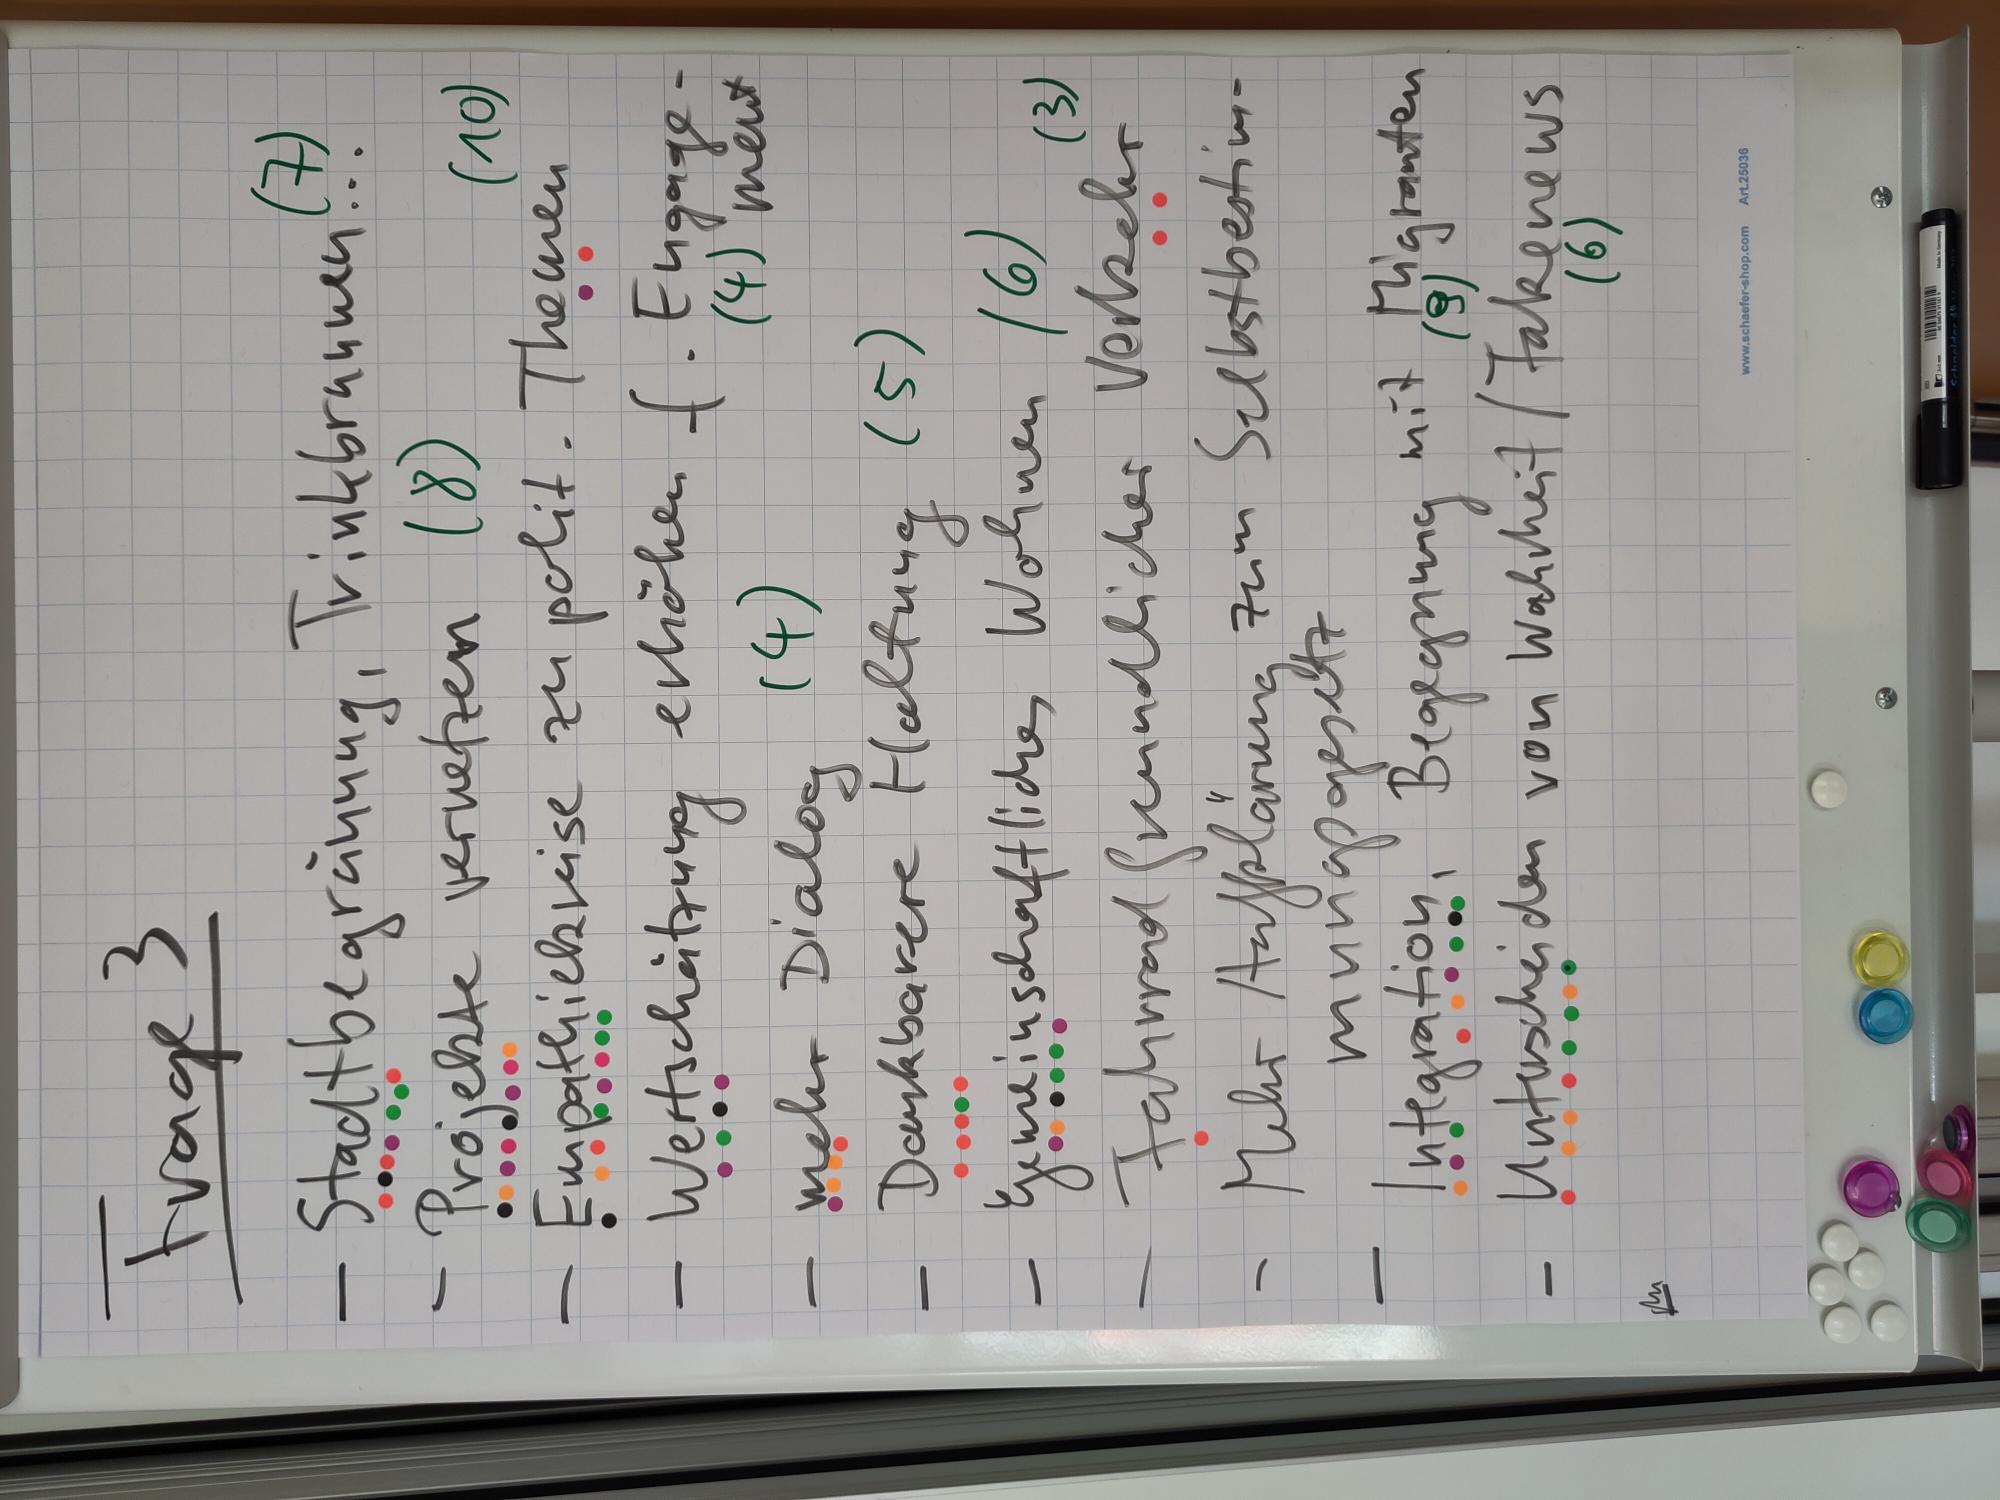 Frage 3
– Stadtbegrünung, Trinkbrunnen... (7)
– Projekte vernetzen (8)
(10)
– Empathiekreise zu polit. Themen
– Wertschätzung erhöhen f. Engage-
(4) ment
– mehr Dialog (4)
– Dankbarere Haltung (5)
– Gemeinschaftliches Wohnen (6)
(3)
– Fahrradfreundlicher Verkehr
– Mehr Aufklärung zum Selbstbestim-
mungsgesetz
– Integration, Begegnung mit Migranten
(9)
– Unterscheiden von Wahrheit / Fakenews
(6)
www.schaefer-shop.com Art.25036
Schneider
Made in Germany